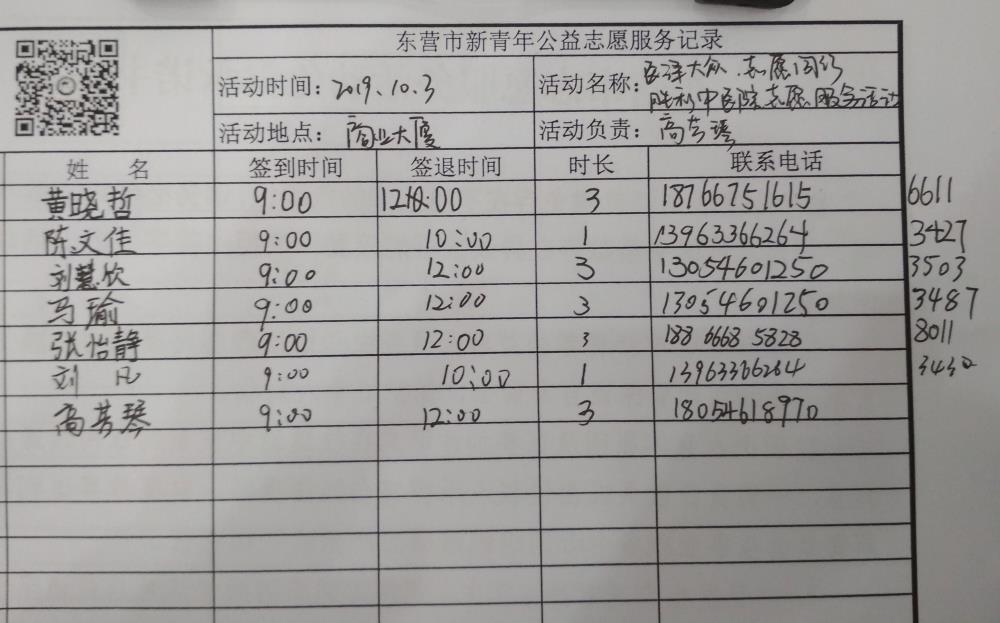 东营市新青年公益志愿服务记录
活动时间：2019.10.3 活动名称：医泽大众.志愿同行
胜利中医院志愿服务活动
活动地点：商业大厦 活动负责：高芳琴
姓 名 签到时间 签退时间 时长 联系电话
黄晓哲 9:00 12:00 3 18766751615 6611
陈文佳 9:00 10:00 1 13963366264 3427
刘慧钦 9:00 12:00 3 13054601250 3503
马瑜 9:00 12:00 3 13054601250 3487
张怡静 9:00 12:00 3 188 6668 5828 8011
刘凡 9:00 10:00 1 13963366264 3430
高芳琴 9:00 12:00 3 18054618970